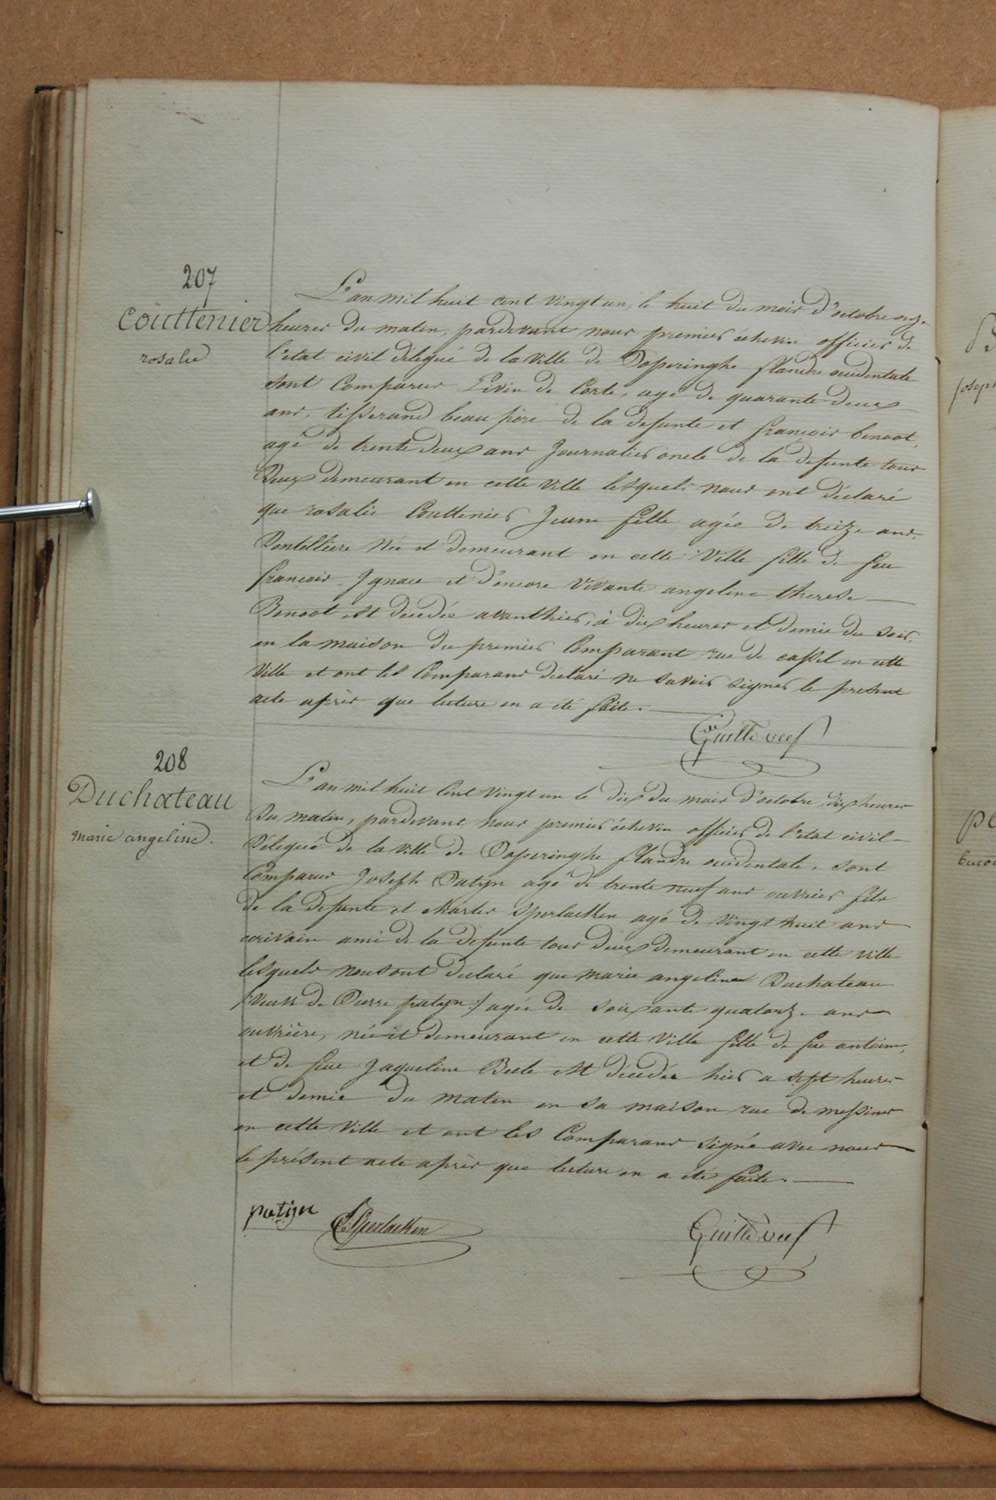 207
Couttenier
rosalie
L'an mil huit cent vingt un, le huit du mois d'octobre onze
heures du matin, pardevant nous premier échevin officier de
l'etat civil délegué de la ville de Poperinghe flandre occidentale
sont Comparus Livin de Corte, agé de quarante deux
ans, tisserand beau père de la defunte et françois benoot,
agé de trente deux ans Journalier oncle de la defunte tous
Deux demeurant en cette ville lesquels nous ont déclaré
que rosalie Couttenier Jeune fille agée de treize ans,
Dentellière Née et demeurant en cette Ville fille de feu
francois Ignace et d'encore Vivante angeline therese
Benoot est decedée avanthier, à dix heures et demie du soir,
en la maison du premier Comparant rue de cassel en cette
Ville et ont les Comparans declaré ne savoir signer le present
acte après que lecture en a été faite.
208
Duchateau
marie angeline.
L'an mil huit Cent Vingt un le dix du mois d'octobre, dix heures
Du matin, pardevant Nous premier échevin officier de l'etat civil
Délegué de la ville de Poperinghe flandre occidentale, sont
Comparus Joseph Patyn agé de trente neuf ans ouvrier fils
de la defunte et Charles Sperlaeken agé de Vingt huit ans
ecrivain ami de la defunte tous deux demeurant en cette ville
lesquels nous ont declaré que marie angeline Duchateau
(: Veuve de Pierre patyn :) agée de soixante quatorze ans
ouvrière, née et demeurant en cette Ville fille de feu antoine,
et de feue Jaqueline Beele est décedée hier a sept heures
et demie du matin en sa maison rue de messines
en cette Ville et ont les Comparans signé avec nous
le présent acte après que lecture en a été faite.
patyn